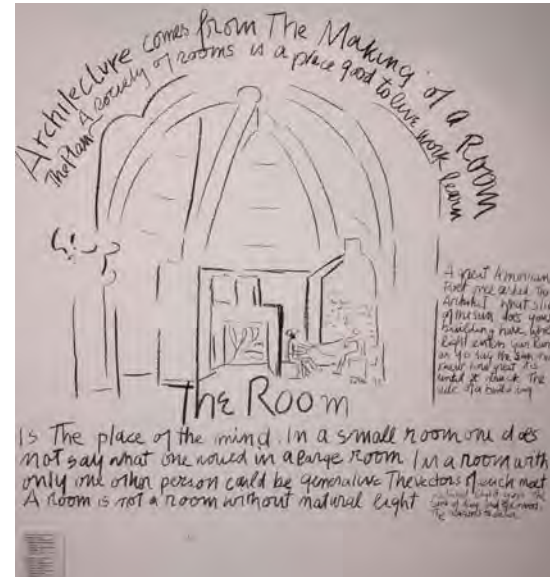 Architecture comes from The Making of a Room
The Plan A society of rooms is a place good to live work learn
A great American
Poet once asked the
Architect what slice
of the sun does your
building have, what
light enters your Room
as if to say the sun never
knew how great it is
until it struck the
side of a building
The Room
Is The place of the mind. In a small room one does
not say what one would in a large room In a room with
only one other person could be generative The vectors of each meet
A room is not a room without natural light
natural light gives the
time of day and the mood
The seasons to enter